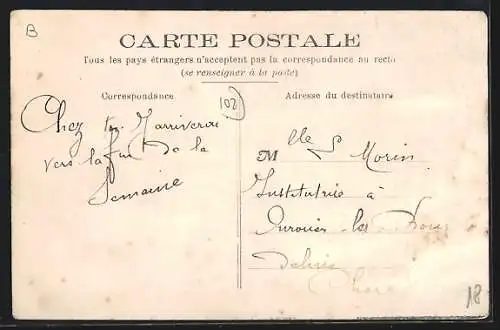 B
CARTE POSTALE
Tous les pays étrangers n'acceptent pas la correspondance au recto
(se renseigner à la poste)
Correspondance
102
Adresse du destinataire
Chez
vers la fin de la
Semaine
Mlle Morin
Institutrice à
Cher
18